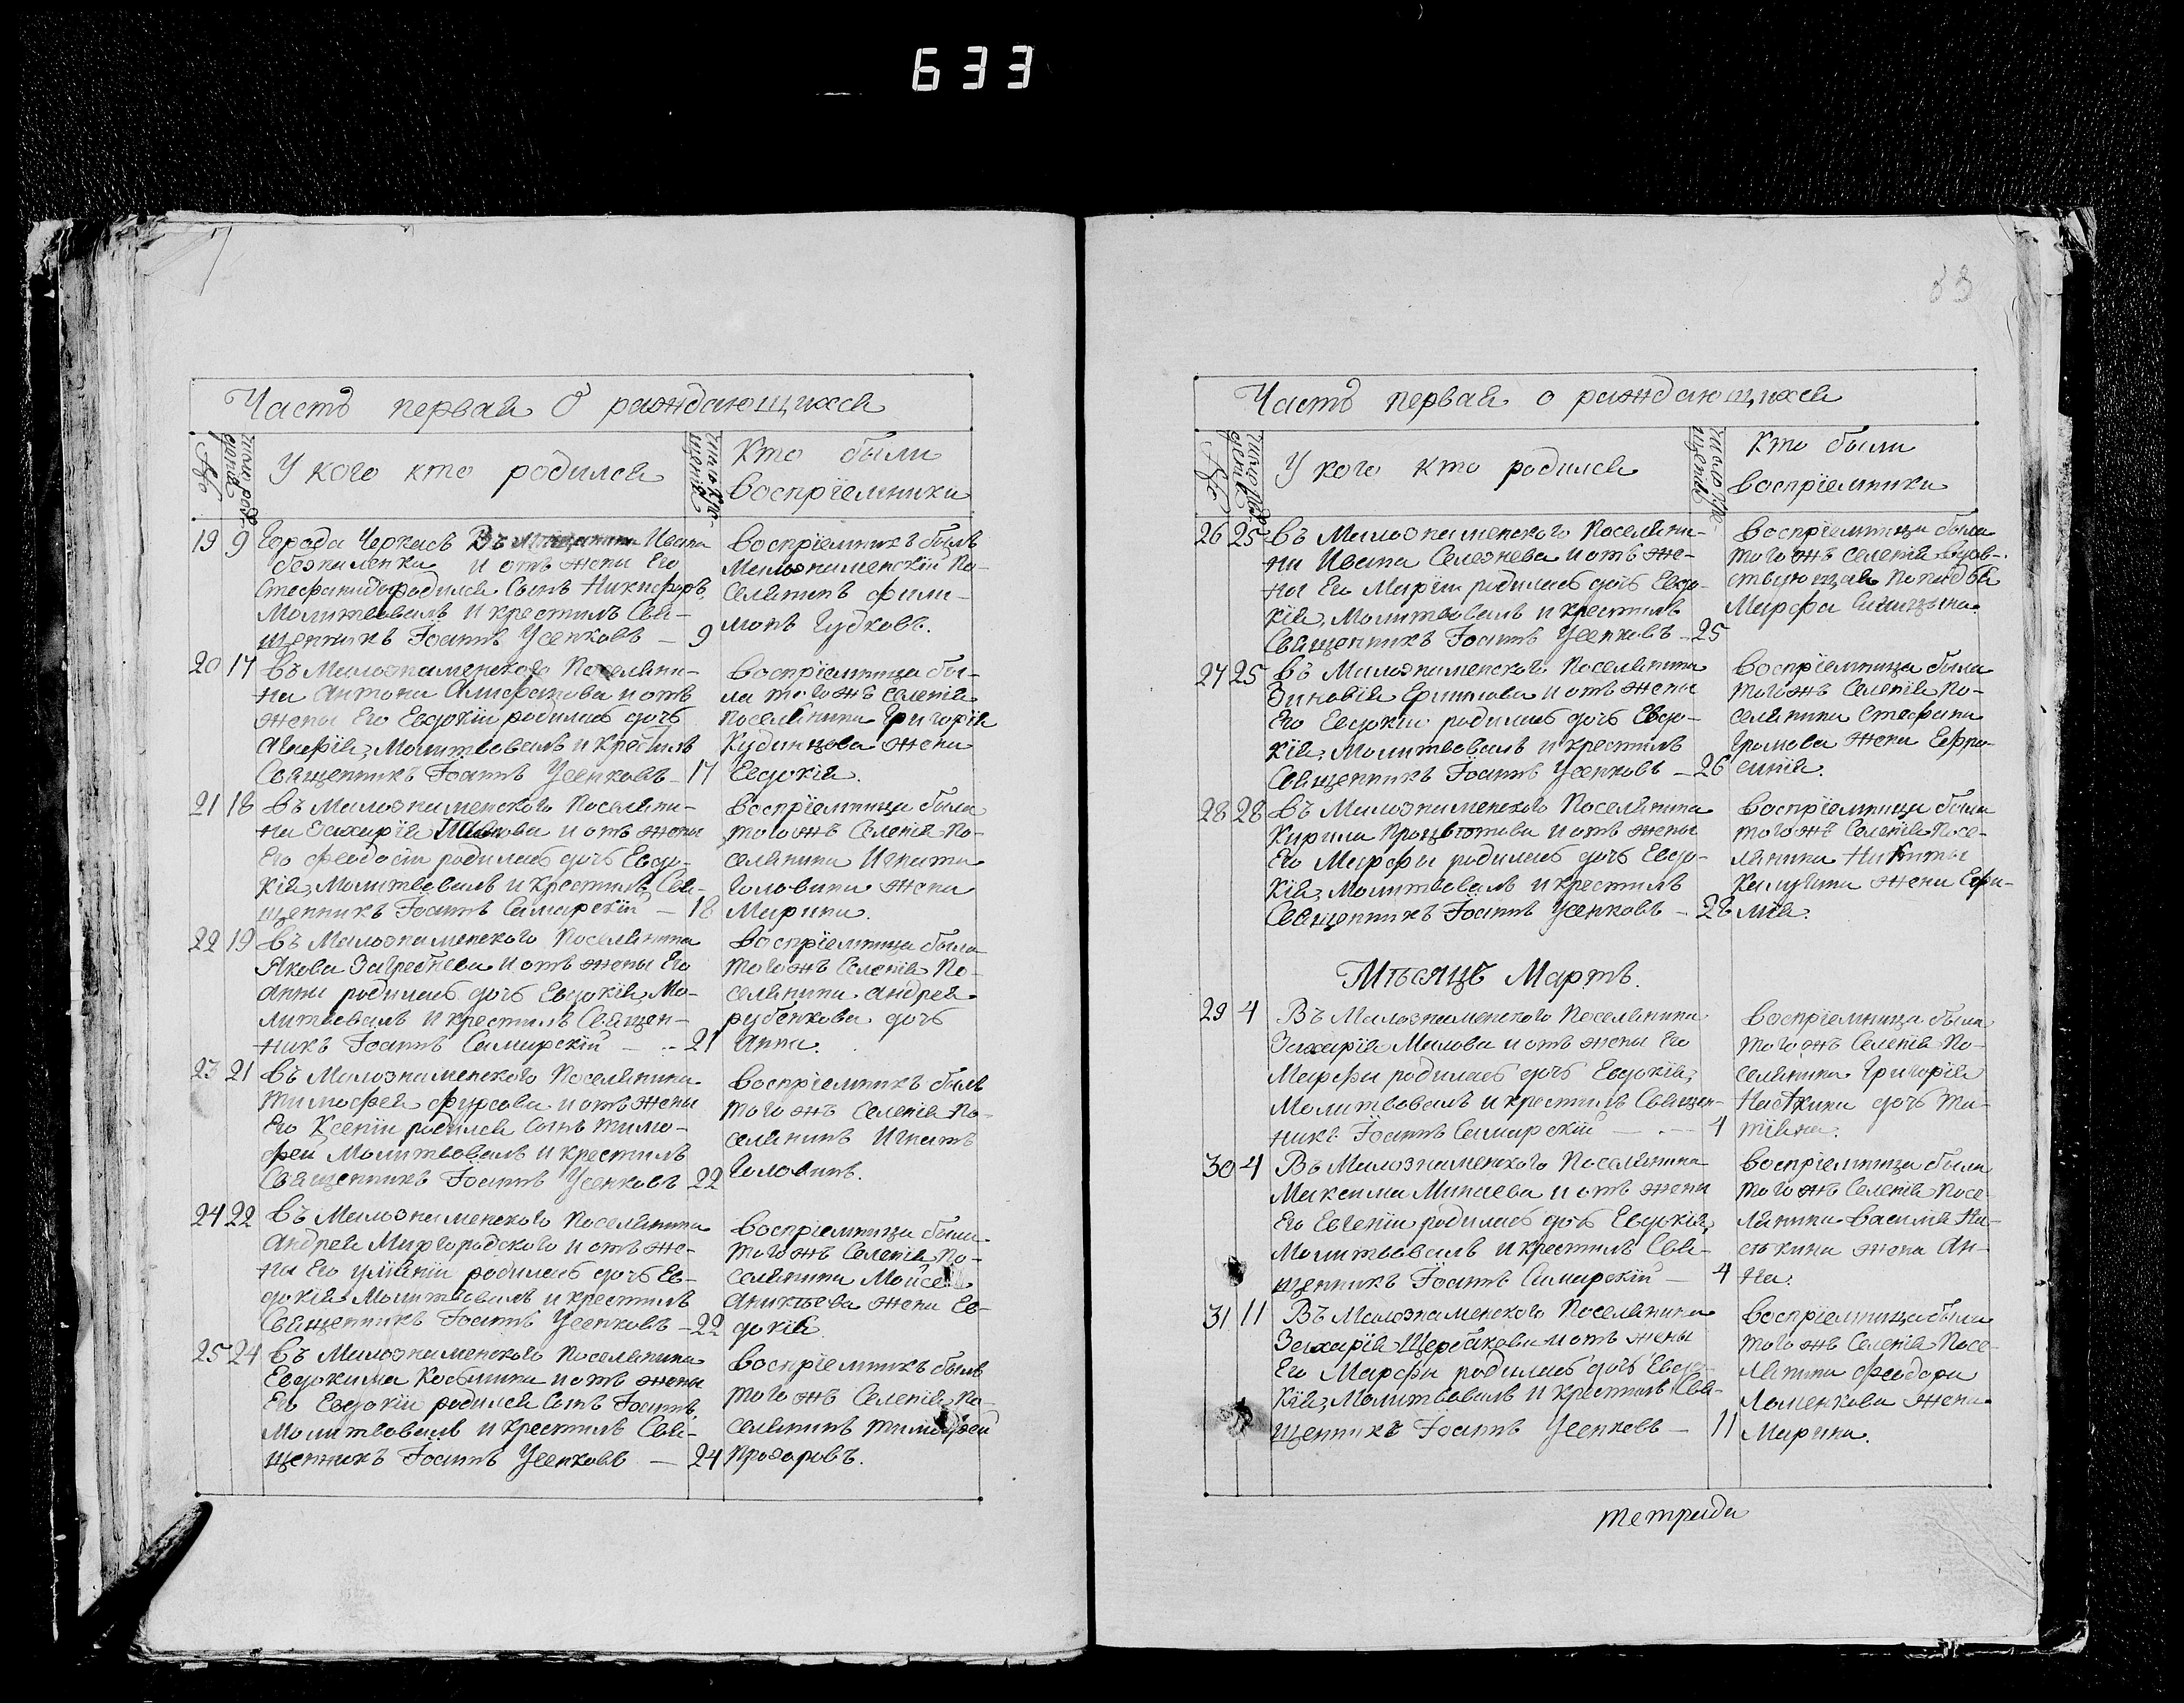 633
33
Часть первая О раждающихся
№
число рождения
У кого кто родился
число крещения
Кто были
воспріемники
19 9 Города Черкасъ Въ Ивана
и отъ жены Его
Стефаниды родился Сынъ Никифоръ.
Молитвовалъ и крестилъ Свя-
щенникъ Іоаннъ Усенковъ — 9
воспріемникъ былъ
Малознаменскій По-
селянинъ фили-
монъ Гудковъ.
20 17 въ Малознаменского Поселяни-
на Антона Алифанова и отъ
жены Его Евдокіи родилась дочь
Агафія, Молитвовалъ и крестилъ
Священникъ Іоаннъ Усенковъ — 17
воспріемница бы-
ла тогожъ Селенія
поселянина Григорія
Кудинцова жена
Евдокія.
21 18 въ Малознаменского Поселяни-
на Захарія и отъ жены
Его феодосіи родилась дочь Евдо-
кія, Молитвовалъ и крестилъ Свя-
щенникъ Іоаннъ Самарскій — 18
воспріемница была
тогожъ Селенія По-
селянина Игната
Головина жена
Марина.
22 19 въ Малознаменского Поселянина
Якова Загребнева и отъ жены Его
Анны родилась дочь Евдокія, Мо-
литвовалъ и крестилъ Священ-
никъ Іоаннъ Самарскій — 21
воспріемница была
тогожъ Селенія По-
селянина Андрея
рубенкова дочь
Анна.
23 21 въ Малознаменского Поселянина
Тимофея фурсова и отъ жены
Его Ксеніи родился Сынъ Тимо-
фей Молитвовалъ и крестилъ
Священникъ Іоаннъ Усенковъ 22
воспріемникъ былъ
тогожъ Селенія По-
селянинъ Игнатъ
Головинъ.
24 22 въ Малознаменского Поселянина
Андрея Миргородского и отъ же-
ны Его уліаніи родилась дочь Ев-
докія Молитвовалъ и крестилъ
Священникъ Іоаннъ Усенковъ — 22
воспріемница была
тогожъ Селенія По-
селянина Мойсея
Аникѣева жена Ев-
докія.
25 24 въ Малознаменского Поселянина
Евдокима Косьмина и отъ жены
Его Евдокіи родился Сынъ Іоаннъ,
Молитвовалъ и крестилъ Свя-
щенникъ Іоаннъ Усенковъ — 24
воспріемникъ былъ
тогожъ Селенія По-
селянинъ Тимофей
Прозоровъ.
Часть первая о раждающихся
№
число рождения
У кого кто родился
число крещения
Кто были
воспріемники
26 25 въ Малознаменского Поселяни-
на Ивана Селезнева и отъ же-
ны Его Маріи родилась дочь Евдо-
кія, Молитвовалъ и крестилъ
Священникъ Іоаннъ Усенковъ — 25
воспріемница была
тогожъ Селенія вдов-
ствующая Попадья
Марфа
27 25 въ Малознаменского Поселянина
Зиновія Ермилова и отъ жены
Его Евдокіи родилась дочь Евдо-
кія, Молитвовалъ и крестилъ
Священникъ Іоаннъ Усенковъ — 26
воспріемница была
тогожъ Селенія По-
селянина Стефана
Громова жена Ефро-
синія.
28 28 въ Малознаменского Поселянина
Кирила Процвѣтова и отъ жены
Его Марфы родилась дочь Евдо-
кія, Молитвовалъ и крестилъ
Священникъ Іоаннъ Усенковъ — 28
воспріемница была
тогожъ Селенія Посе-
лянина Никиты
Калугина жена Ефи-
мія.
Мѣсяцъ Мартъ.
29 4 Въ Малознаменского Поселянина
Захарія Милова и отъ жены Его
Марфы родилась дочь Евдокія,
Молитвовалъ и крестилъ Священ-
никъ Іоаннъ Самарскій — 4
воспріемница была
тогожъ Селенія По-
селянина Григорія
дочь Та-
тіана.
30 4 Въ Малознаменского Поселянина
Максима Минаева и отъ жены
Его Евгеніи родилась дочь Евдокія,
Молитвовалъ и крестилъ Свя-
щенникъ Іоаннъ Самарскій — 4
воспріемница была
тогожъ Селенія Посе-
лянина Василія На-
сѣкина жена Ан-
на.
31 11 Въ Малознаменского Поселянина
Захарія Щербакова и отъ жены
Его Марфы родилась дочь Евдо-
кія, Молитвовалъ и крестилъ Свя-
щенникъ Іоаннъ Усенковъ — 11
воспріемница была
тогожъ Селенія Посе-
лянина Феодора
Ломенкова жена
Марина.
тетради